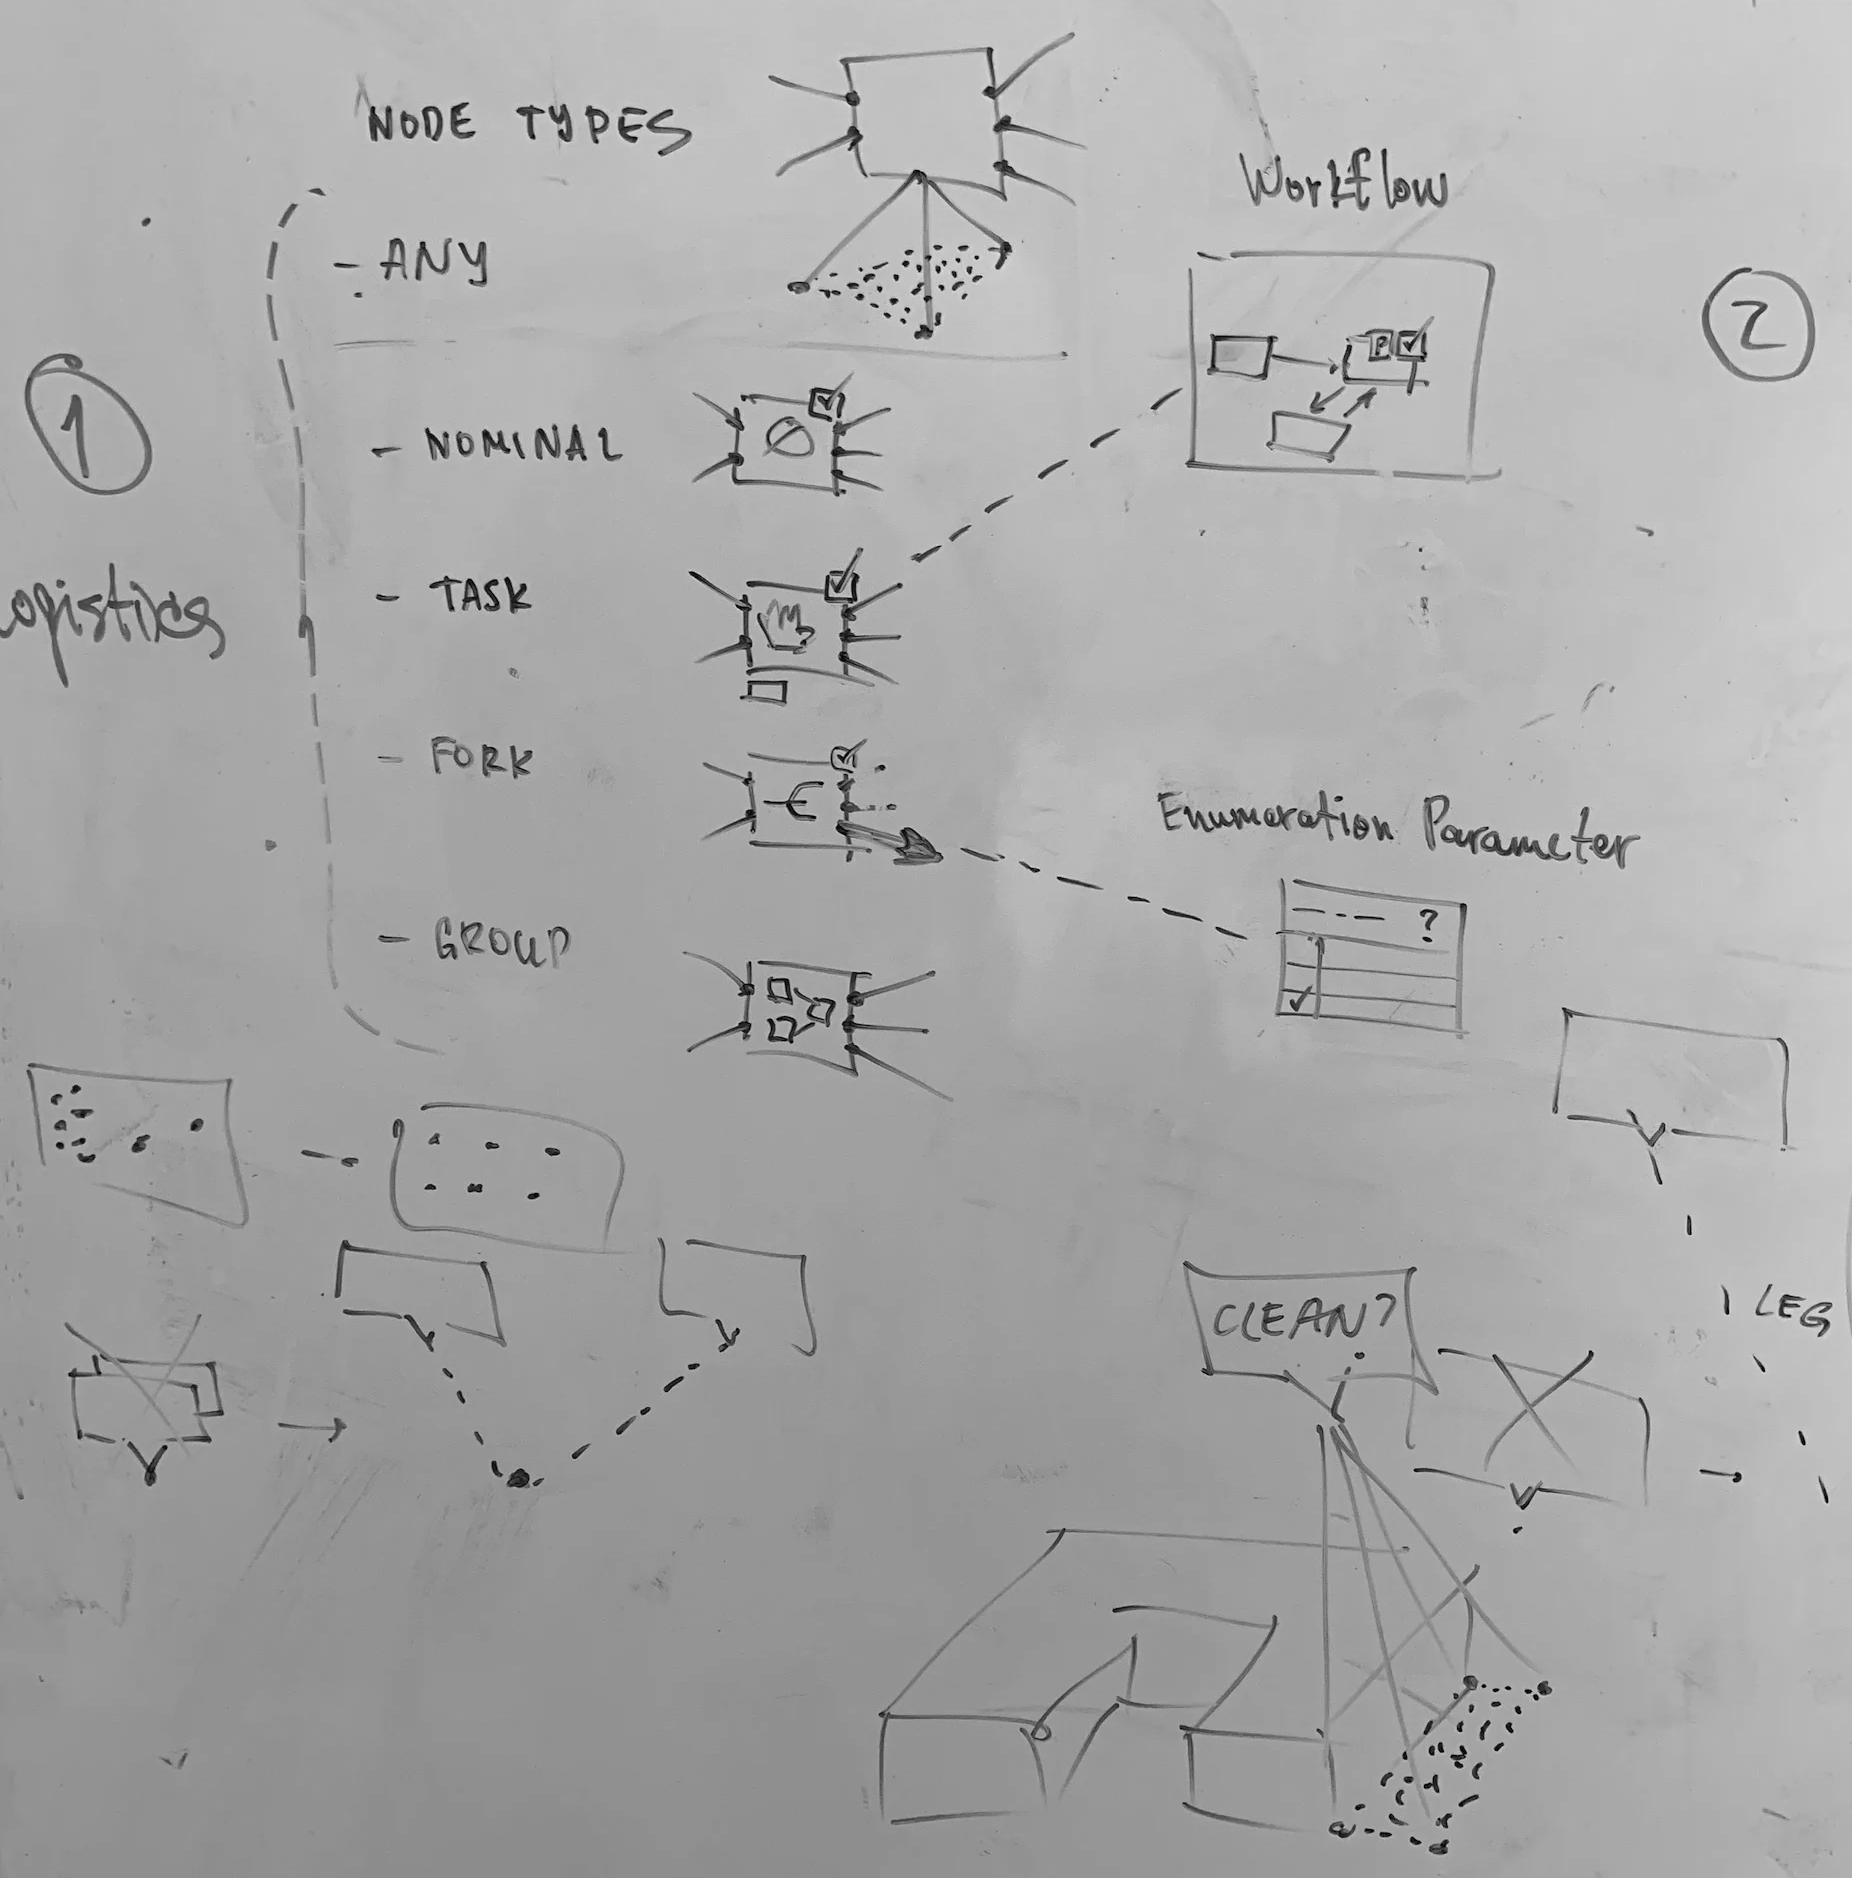 NODE TYPES
Workflow
- ANY
2
1
- NOMINAL
P
- TASK
ogistics
- FORK
Enumeration Parameter
?
- GROUP
CLEAN?
LEG